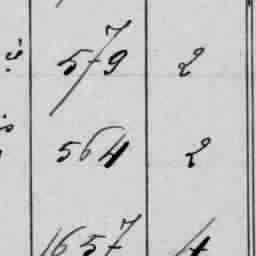 579 2
564 2
1657 4